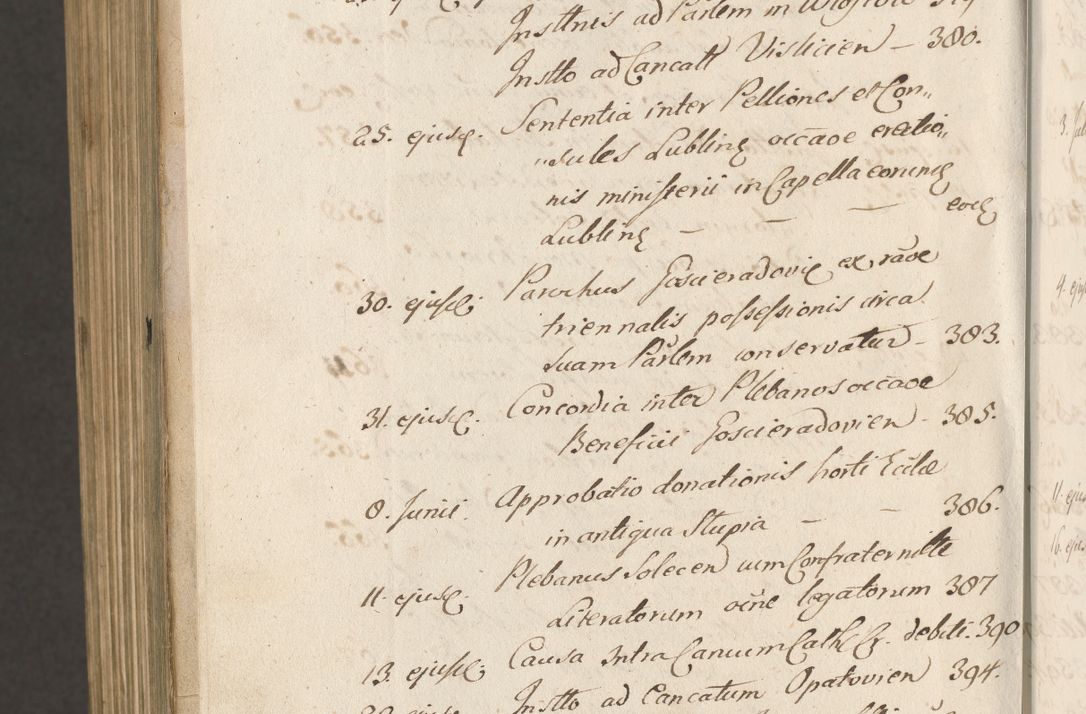 Insttnis ad Parlem in
Instto ad Cancalt Vislicien – 380.
25. ejusq. Sententia inter Pelliones et Con„
„sules Lubling occãoe erectio„
nis ministerii in Capella eorung
Lubling – – eocq
30. ejusq. Parochus Goscieradovig ex rãoe
triennalis possessionis circa
suam Parlem conservatur – 383.
31. ejusq. Concordia inter Plebanos occãoe
Beneficii Goscieradovien – 385.
8. Junii. Approbatio donationis horti Eccliæ
in antiqua Slupia – – 386.
11. ejusq. Plebanus Solecen cum Confraternitte
Literatorum occne legatorum 387
13. ejusq. Causa Intra Canuum Cath. debiti. 390
Instto ad Cancatum Opatovien 394.